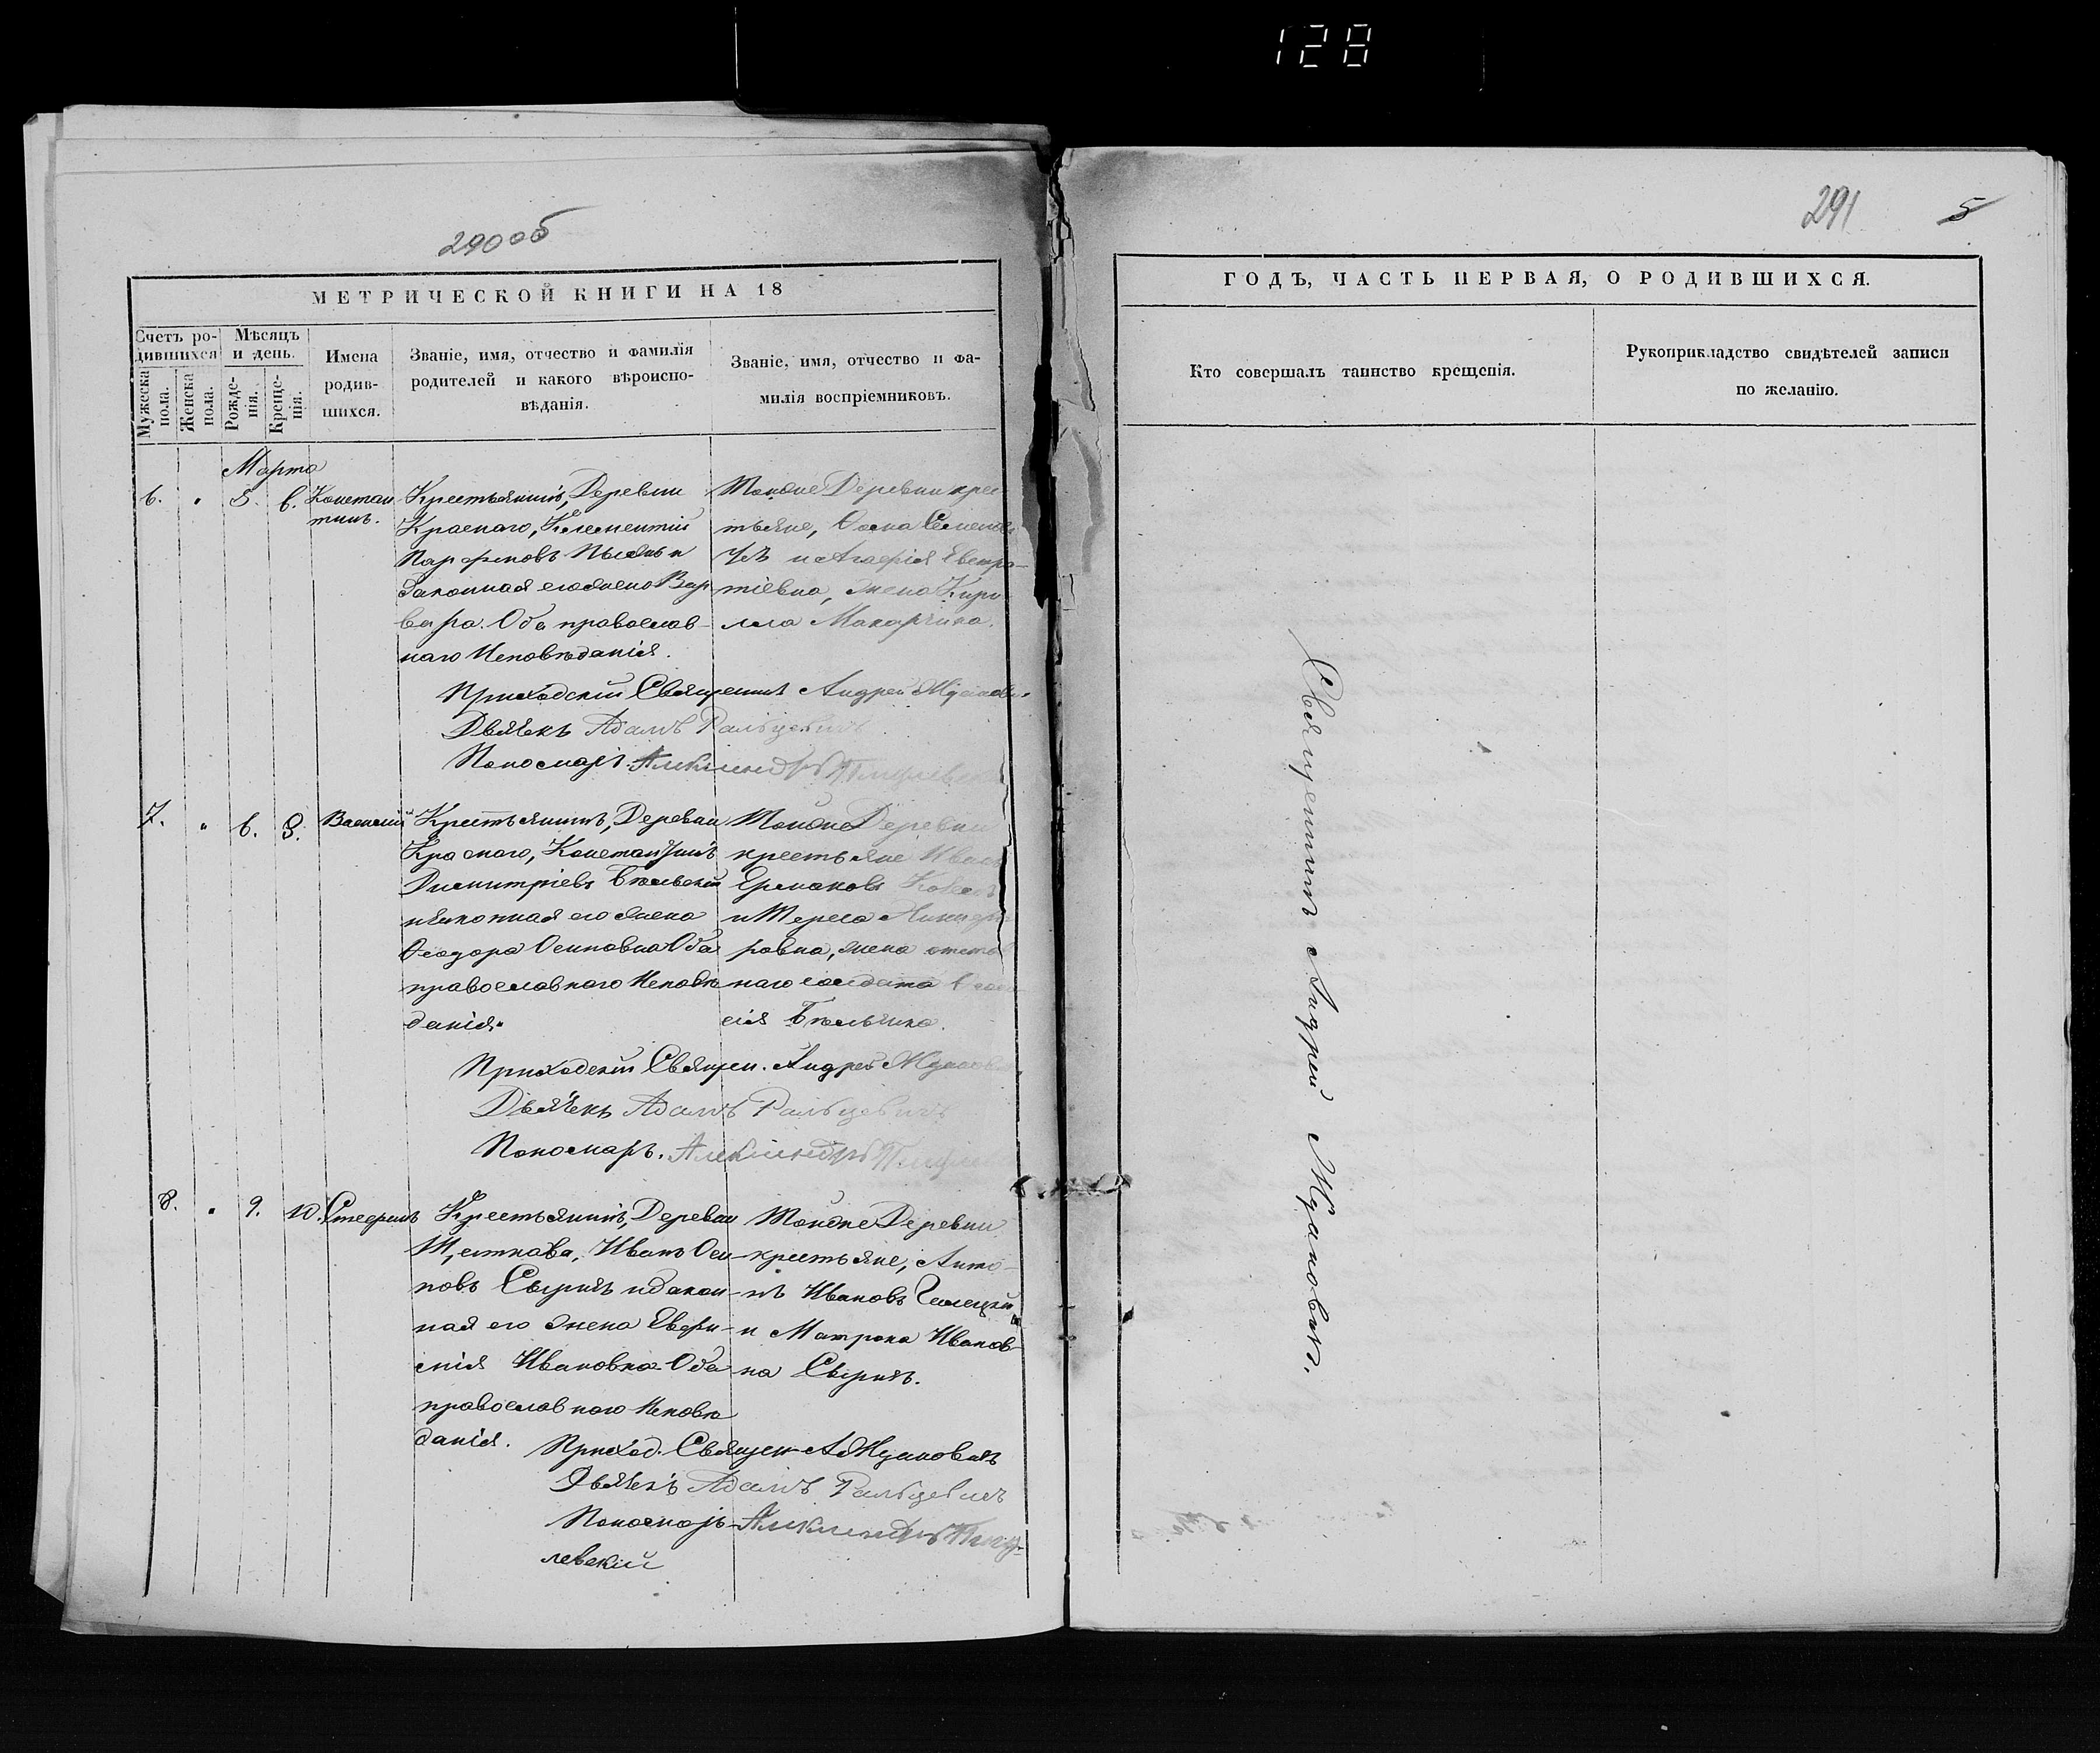 128
290 об
291 5
МЕТРИЧЕСКОЙ КНИГИ НА 18
Счетъ ро-
дившихся
Мужеска
пола.
Женска
пола.
Мѣсяцъ
и день.
Рожде-
нія.
Креще-
нія.
Имена
родив-
шихся.
Званіе, имя, отчество и фамилія
родителей и какого вѣроиспо-
вѣданія.
Званіе, имя, отчество и фа-
милія воспріемниковъ.
Марта
6. " 5. 6. Констан
тинъ.
Крестьянинъ, Деревни
Краснаго, Клементій
Парфеновъ и
Законная его жена Вар
вара. Оба православ
наго Исповѣданія.
Тойже Деревни крес
тьяне, Ѳома Семеновъ
и Агафія Евстра-
тіевна, жена Кири
лла Макарчика.
Приходскій Священникъ Андрей Ждановичъ
Дьячекъ Адамъ Ральцевичъ
Пономарь Александръ
7. " 6. 8. Василій
Крестьянинъ, Деревни
Краснаго, Константинъ
Димитріевъ Бѣльскій
и законная его жена
Ѳеодора Осиповна Оба
православнаго Исповѣ
данія.
Тойже Деревни
крестьяне Иванъ
Ермаковъ
и Тереса
ровна, жена отстав
наго солдата
сія Бѣльчика.
Приходскій Священ. Андрей Ждановичъ
Дьячекъ Адамъ Ральцевичъ
Пономарь. Александръ
8. " 9. 10. Стефанъ
Крестьянинъ, Деревни
Иванъ Оси
повъ Сыринъ и закон
ная его жена Евфи
мія Ивановна Оба
православнаго Исповѣ
данія.
Тойже Деревни
крестьяне, Анто-
нъ Ивановъ
и Матрона Иванов
на Сыринъ.
Приход. Священ. А. Ждановичъ
Дьячекъ Адамъ Ральцевичъ
Пономарь Александръ
левскій
ГОДЪ, ЧАСТЬ ПЕРВАЯ, О РОДИВШИХСЯ.
Кто совершалъ таинство крещенія.
Рукоприкладство свидѣтелей записи
по желанію.
Священникъ Андрей Ждановичъ.